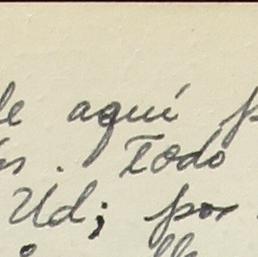 de aquí p
ós. Todo
Ud; por